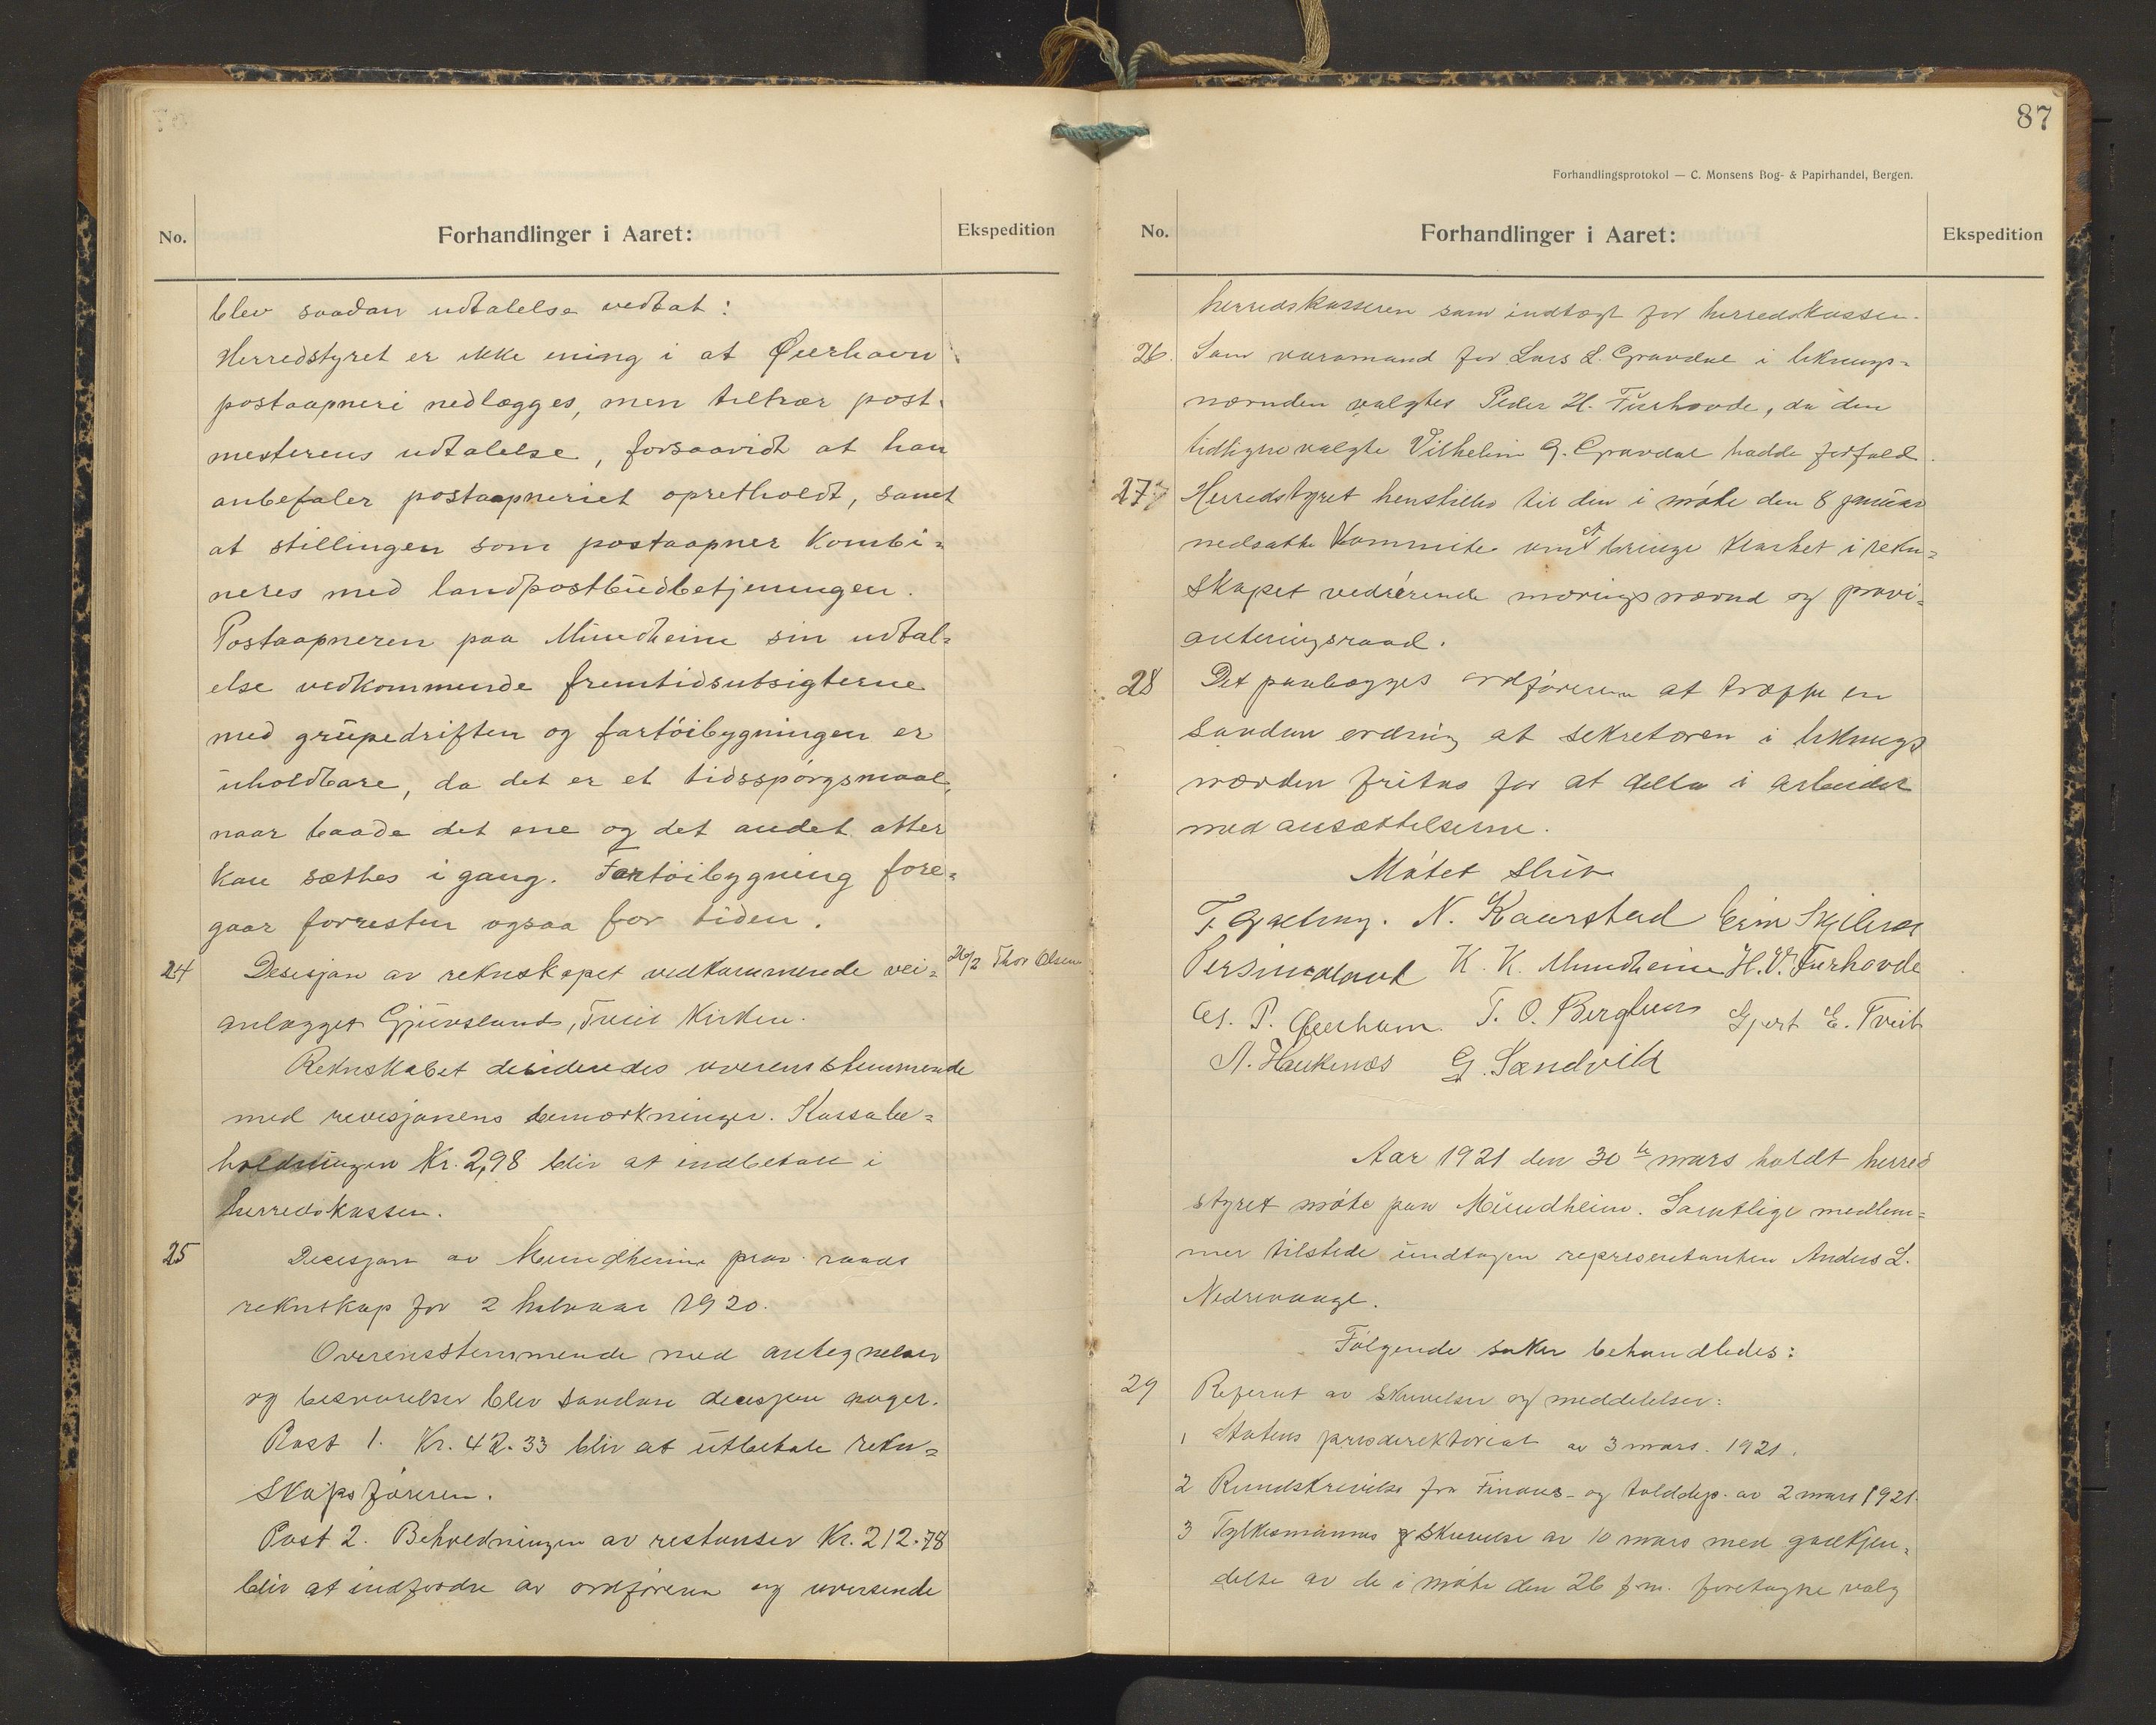 No.
Forhandlinger i Aaret:
Ekspedition
blev saadan udtalelse vedtat:
Herredstyret er ikke ening i at Øierhavn
postaapneri nedlægges, men tiltrær post-
mesterens udtalelse, forsaavidt at han
anbefaler postaapneriet opretholdt, samt
at stillingen som postaapner kombi=
neres med landpostbudbetjeningen.
Postaapneren paa Mundheim sin udtal=
else vedkommende fremtidsutsigterne
med grubedriften og fartöibygningen er
uholdbare, da det er et tidsspörgsmaal,
naar baade det ene og det andet atter
kan sættes i gang. Fartöibygning fore=
gaar forresten ogsaa for tiden.
24 Desisjon av reknskapet vedkommende vei=
26/2 Thor Olsen
anlægget Gjuvsland, Tveit Kirken.
Reknskabet desideredes overensstemmende
med revisjonens bemærkninger. Kassabe=
holdningen Kr. 2,98 bliv at indbetale i
herredskassen.
25 Decisjon av Mundheim prov. raads
reknskap for 2 halvaar 1920.
Overensstemmende med antegnelser
og besvarelser blev saadan decisjon avget.
Post 1. Kr. 42.33 bliv at utbetale rekn=
skapsföreren.
Post 2. Beholdningen av restanser Kr. 212.78
bliv at indfordre av ordföreren og oversende
87
Forhandlingsprotokol — C. Monsens Bog- & Papirhandel, Bergen.
No.
Forhandlinger i Aaret:
Ekspedition
herredskasseren som indtægt for herredskassen.
26. Som varamand for Lars L. Gravdal i liknings=
nævnden valgtes Peder H. Furhovde, da den
tidligere valgte Vilhelm G. Gravdal hadde forfald.
27 Herredstyret henstilles til den i möte den 8 januar
nedsatte Kommite om at bringe klarhet i rekn=
skapet vedrörende næringsnævnd og provi=
anteringsraad.
28 Det paalægges ordföreren at træffe en
saadan ordning at sekretæren i liknings
nævnden fritas for at delta i arbeidet
med ansættelserne.
Mötet slut
N. Kaurstad
K. K. Mundheim H. V. Furhovde
T. O. Berghus Gjert E. Tveit
A. Haukenæs G. Sandvik
Aar 1921 den 30te mars holdt herred
styret möte paa Mundheim. Samtlige medlem=
mer tilstede undtagen representanten Anders L.
Nedrevaage.
Fölgende saker behandledes:
29 Referat av skrivelser og meddelelser:
1 Statens prisdirektoriat av 3 mars. 1921.
2 Rundskrivelse fra Finans- og tolddep. av 2 mars 1921.
3 Fylkesmannens skrivelse av 10 mars med godkjen=
delse av de i möte den 26 f.m. foretagne valg